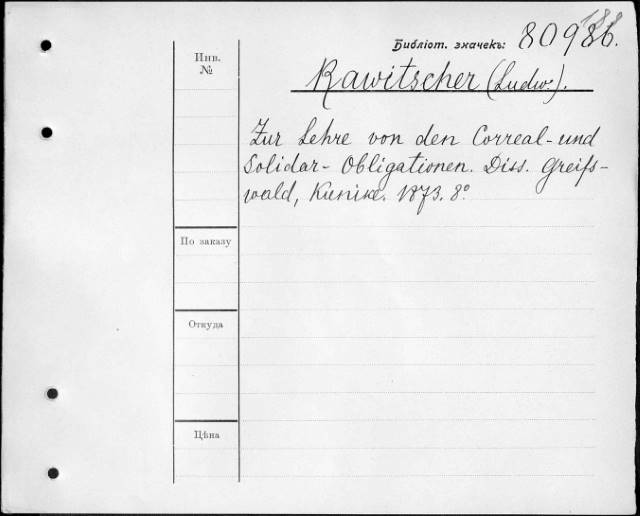 188
Библіот. значекъ: 80986.
Инв.
№
Rawitscher (Ludw.).
Zur Lehre von den Correal- und
Solidar- Obligationen. Diss. Greifs-
wald, Kunike. 1873. 8°
По заказу
Откуда
Цѣна